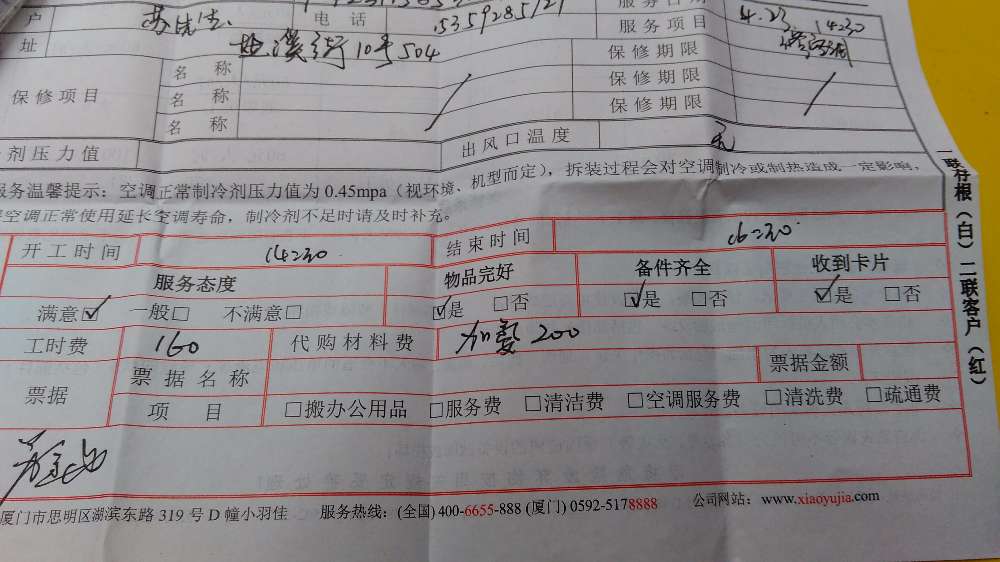 户 苏先生 电话 15359285121 服务日期 4.23 14:30
址 溪街10号504 服务项目 空调
保修项目 名称 保修期限
名称 保修期限
名称 保修期限
剂压力值 出风口温度
服务温馨提示:空调正常制冷剂压力值为 0.45mpa(视环境、机型而定),拆装过程会对空调制冷或制热造成一定影响,
空调正常使用延长空调寿命,制冷剂不足时请及时补充。
开工时间 14:30 结束时间 16:30
服务态度 物品完好 备件齐全 收到卡片
满意☑ 一般□ 不满意□ ☑是 □否 ☑是 □否 ☑是 □否
工时费 160 代购材料费 加氨 200
票据 票据名称 票据金额
项目 □搬办公用品 □服务费 □清洁费 □空调服务费 □清洗费 □疏通费
厦门市思明区湖滨东路 319 号 D 幢小羽佳 服务热线:(全国) 400-6655-888 (厦门) 0592-5178888 公司网站:www.xiaoyujia.com
一联存根(白)二联客户(红)